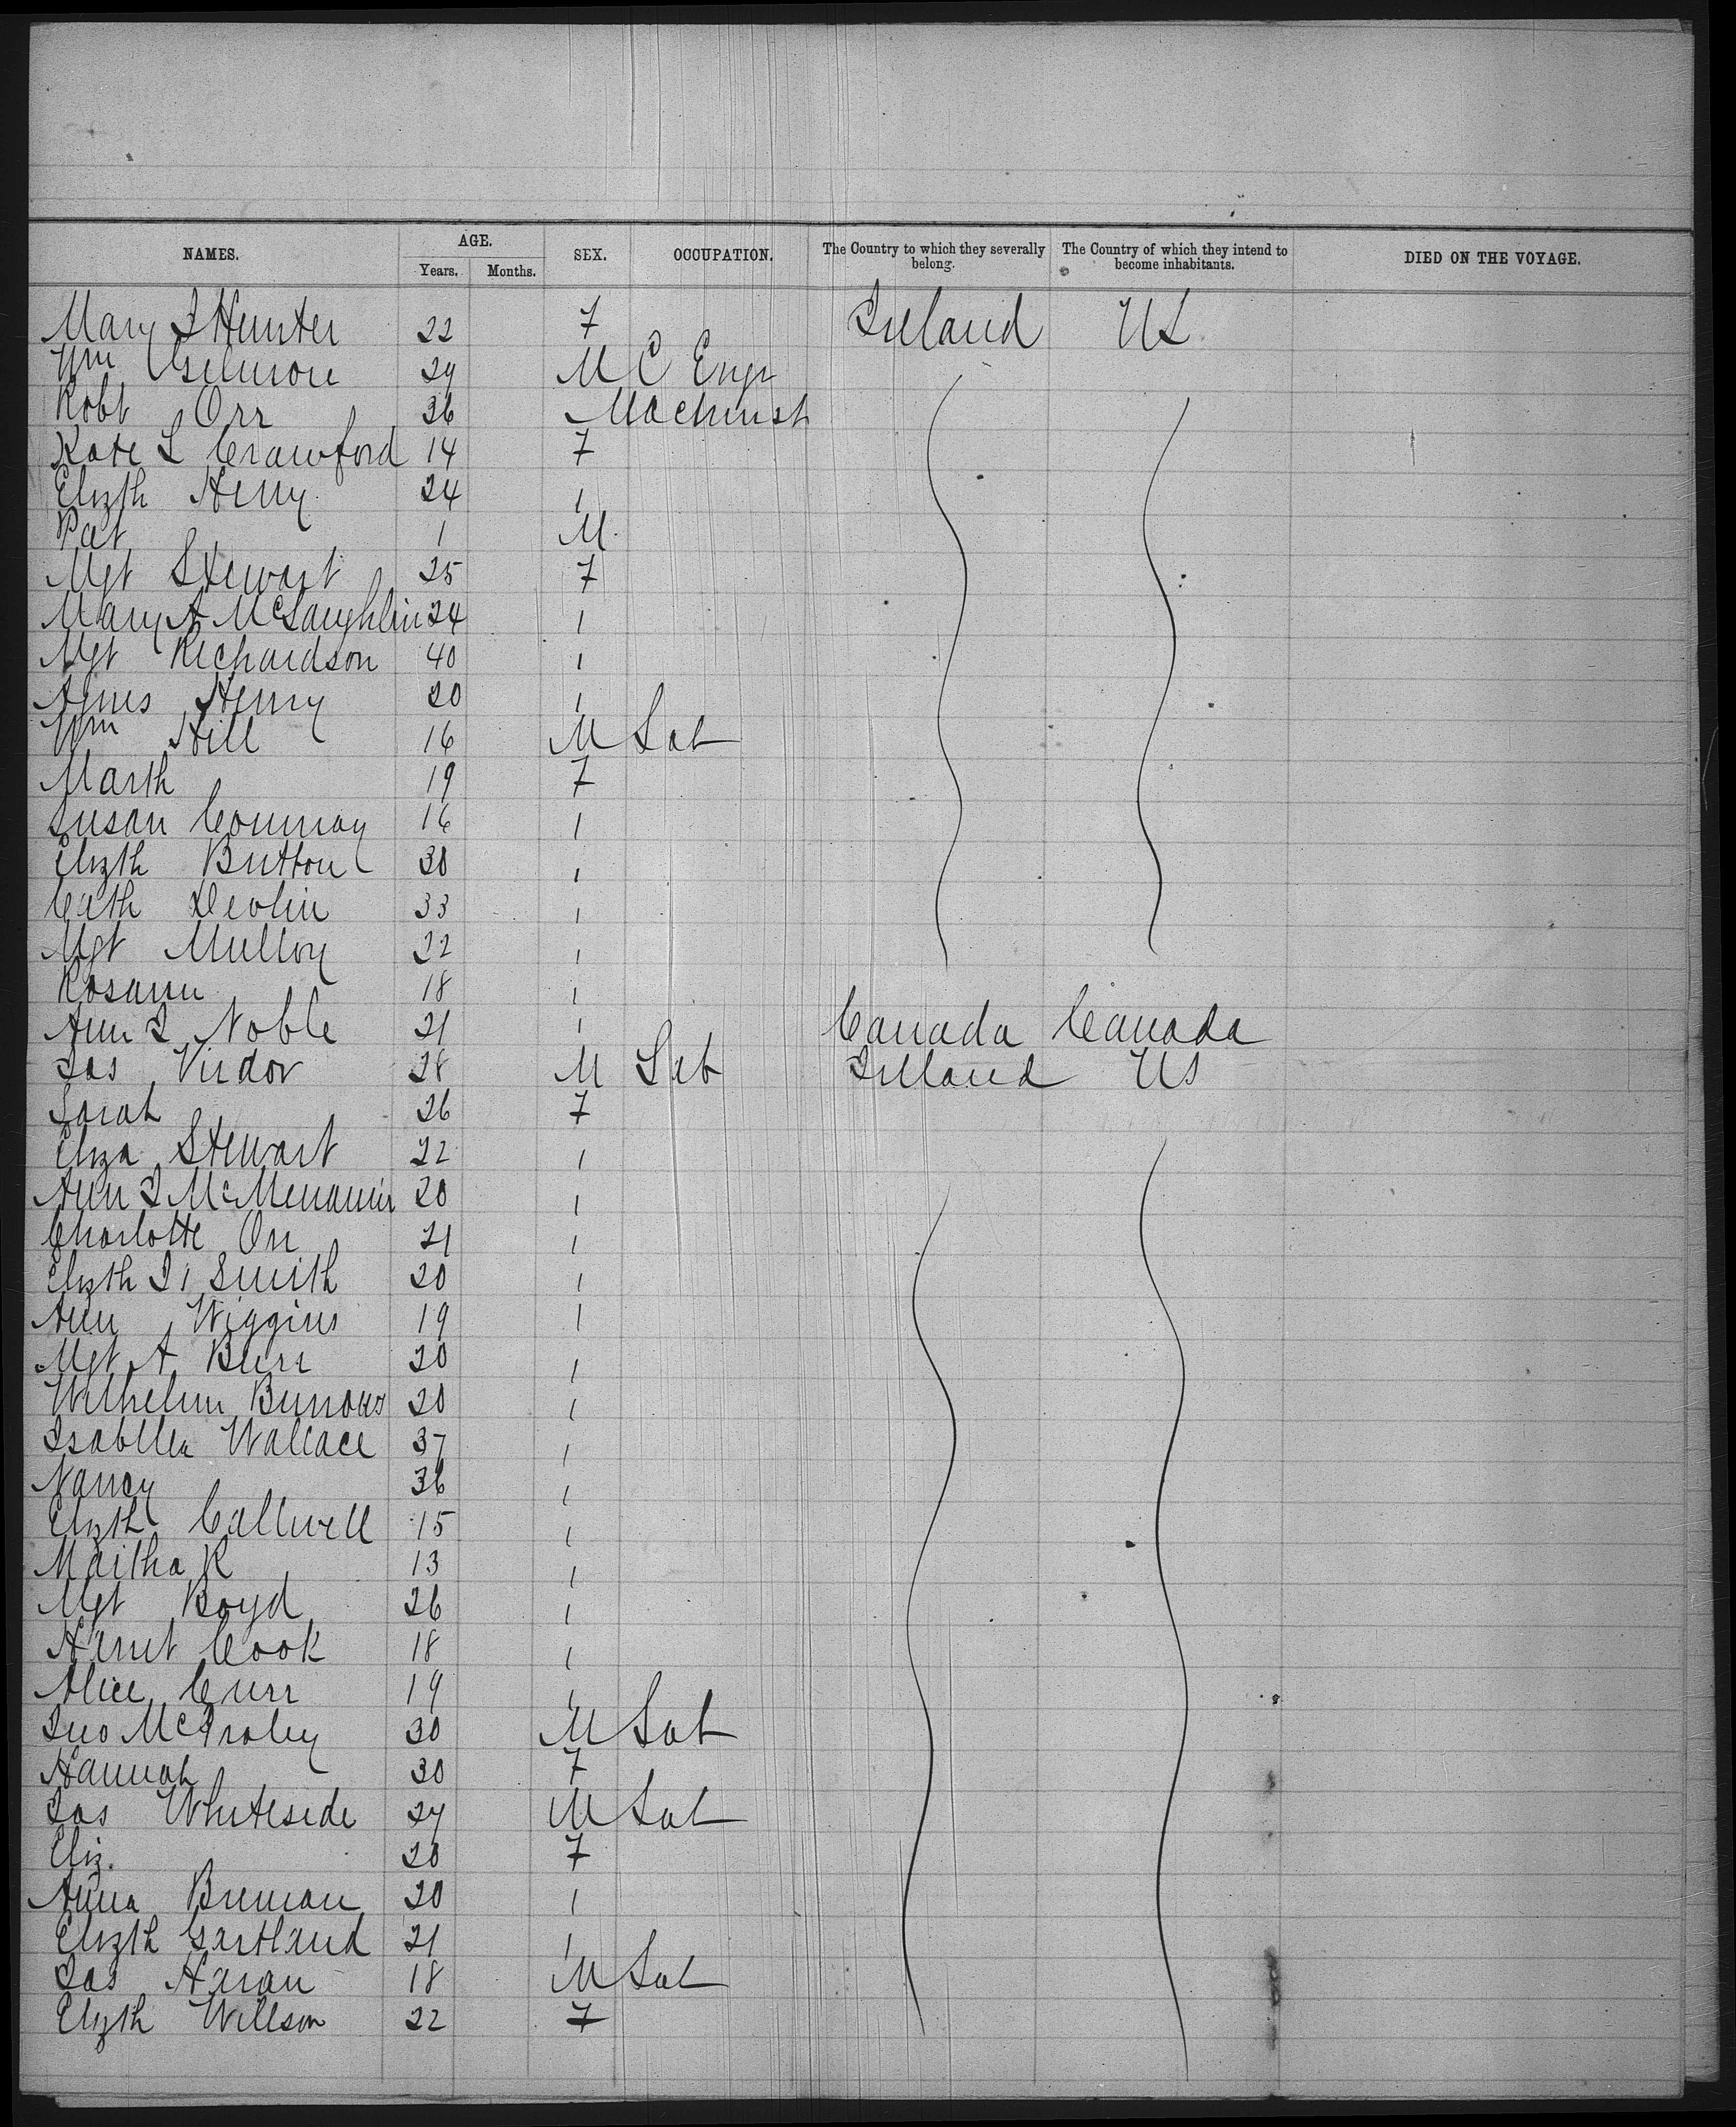 NAMES. AGE. SEX. OCCUPATION. The Country to which they severally belong. The Country of which they intend to become inhabitants. DIED ON THE VOYAGE.
Years. Months.
Mary J Hunter 22 F Ireland US
Wm Gilmore 29 M C Engr
Robt Orr 36 Machinist
Kate L Crawford 14 F
Elizth Henry 24 "
Pat 1 M
Mgt Stewart 25 F
Mary A McLaughlin 24 "
Mgt Richardson 40 "
Agnes Henry 20 "
Wm Hill 16 M Lab
Marth 19 F
Susan Conway 16 "
Elizth Britton 30 "
Cath Devlin 33 "
Mgt Mulloy 22 "
Rosann 18 "
Ann J Noble 21 " Canada Canada
Jas 28 M Lab Ireland US
Sarah 26 F
Eliza Stewart 22 "
Ann J McMenamin 20 "
Charlotte Orr 21 "
Elizth Smith 20 "
Ann Wiggins 19 "
Mgt A Burr 20 "
Wilhelm Burrows 20 "
Isabella Wallace 37 "
Nancy 36 "
Elizth Callwell 15 "
Martha R 13 "
Mgt Boyd 26 "
Harriet Cook 18 "
Alice Curr 19 "
Jno 30 M Lab
Hannah 30 F
Jas Whiteside 24 M Lab
Eliz. 20 F
Anna Brennan 20 "
Elizth Gartland 21 "
Jas Haran 18 M Lab
Elizth Willson 22 F